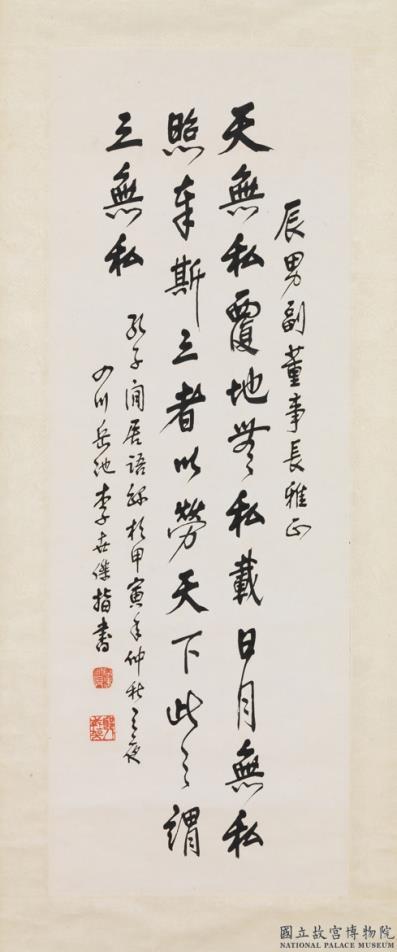 辰男副董事長雅正
天無私覆地無私載日月無私
照奉斯三者以勞天下此之謂
三無私
孔子閒居語錄於甲寅年仲秋之夜
四川岳池李世傑指書
國立故宮博物院
NATIONAL PALACE MUSEUM